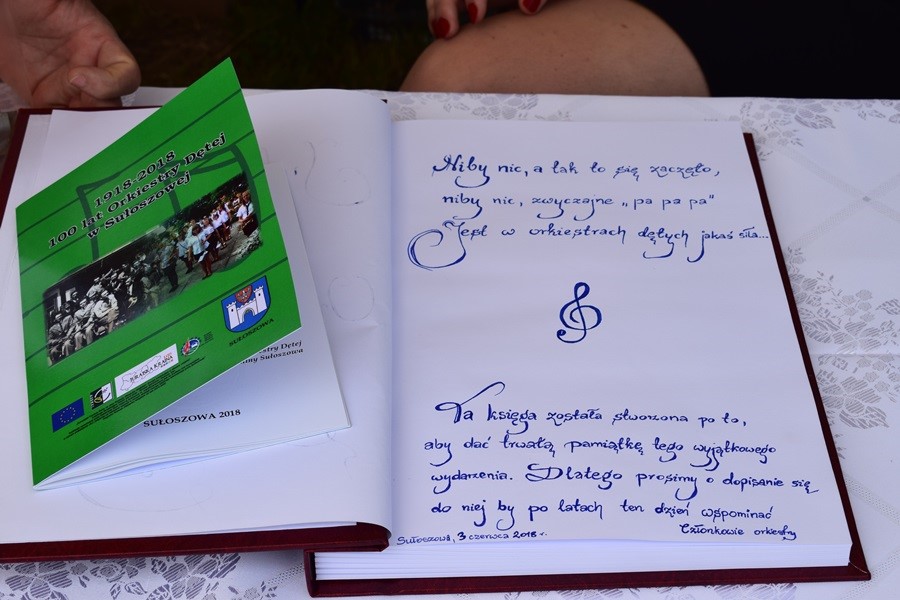 1918-2018
100 lat Orkiestry Dętej
w Sułoszowej
SUŁOSZOWA
JURAJSKA KRAINA
Dętej
Sułoszowa
SUŁOSZOWA 2018
Niby nic, a tak to się zaczęło,
niby nic, zwyczajne „pa pa pa"
Jest w orkiestrach dętych jakaś siła...
Ta księga została stworzona po to,
aby dać trwałą pamiątkę tego wyjątkowego
wydarzenia. Dlatego prosimy o dopisanie się
do niej by po latach ten dzień wspominać
Członkowie orkiestry
Sułoszowa, 3 czerwca 2018 r.